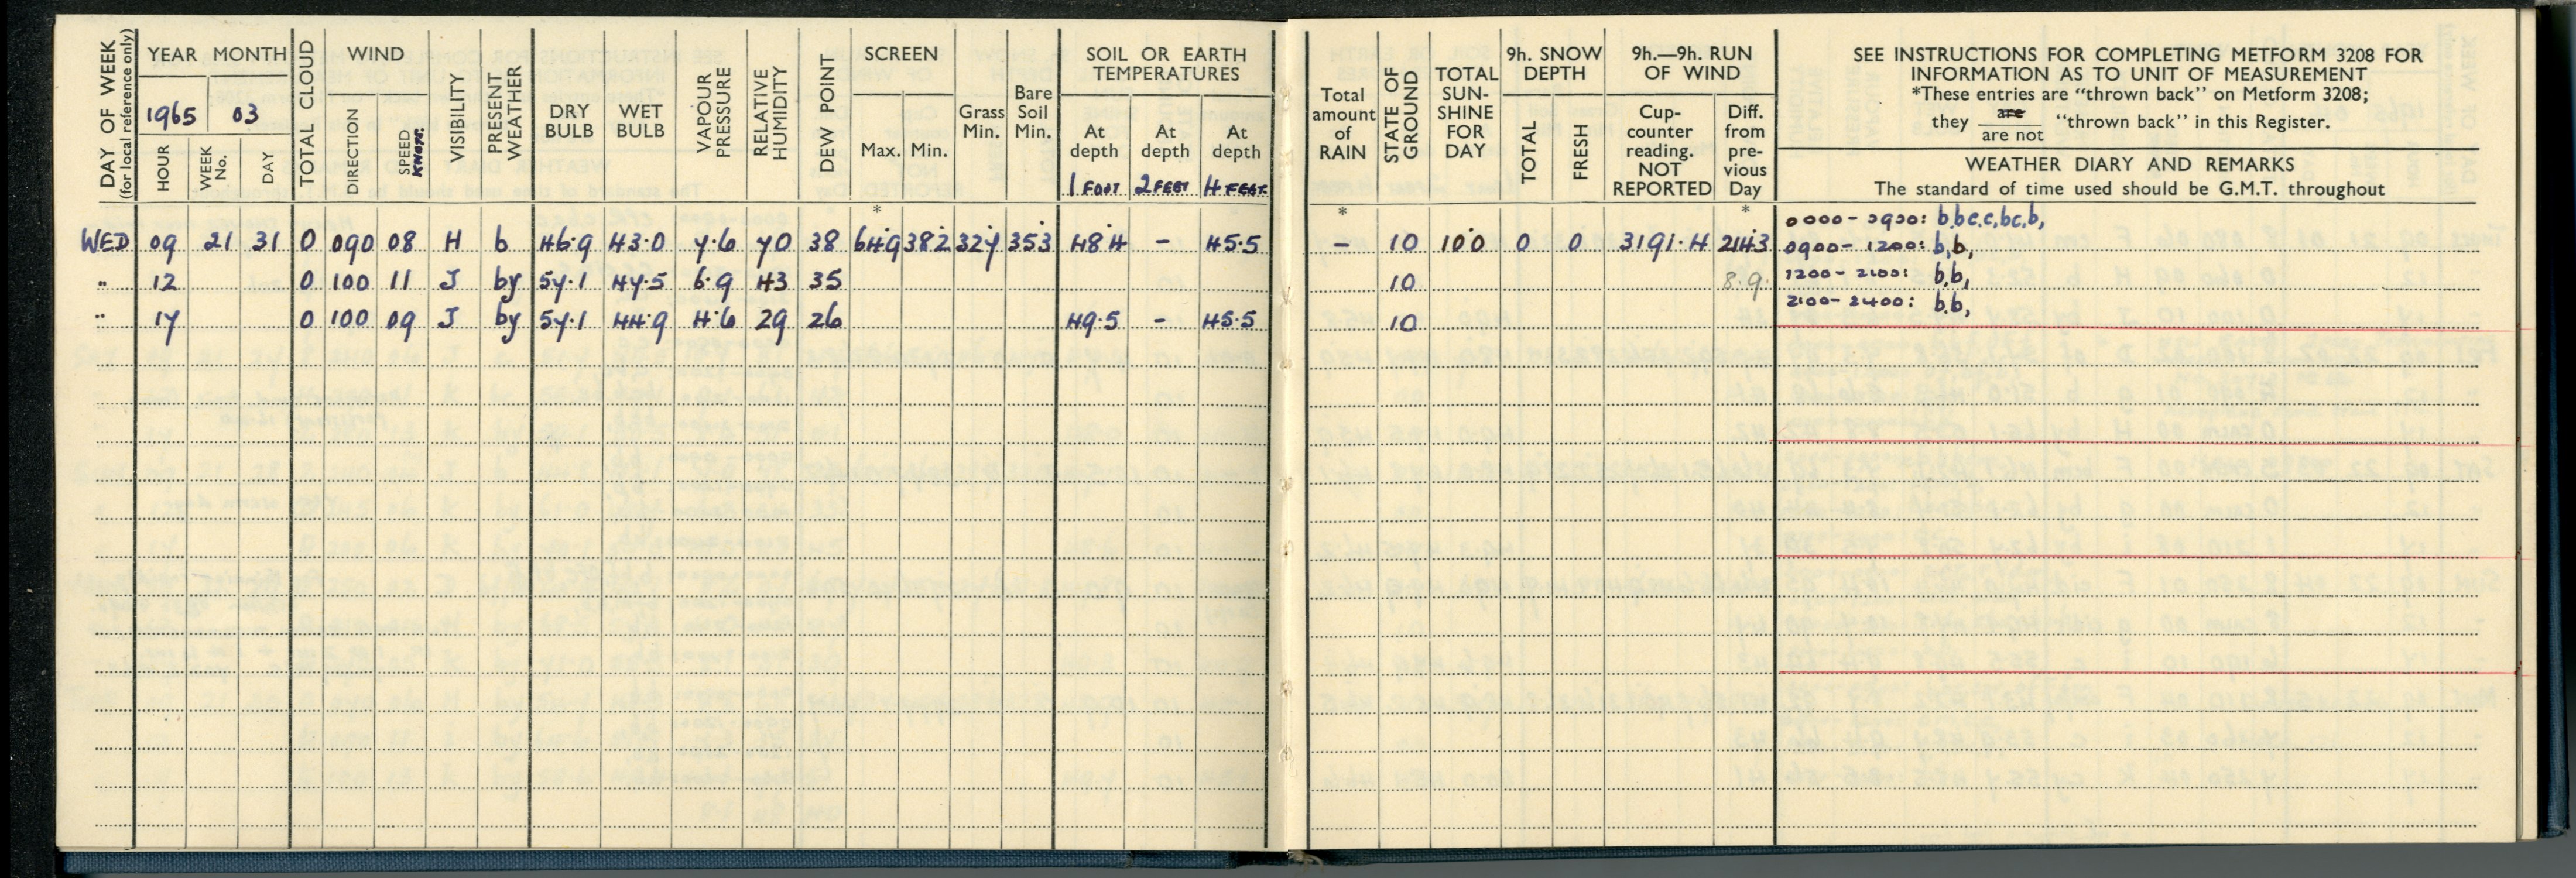 DAY OF WEEK
(for local reference only)
YEAR MONTH
1965 03
HOUR
WEEK No.
DAY
TOTAL CLOUD
WIND
DIRECTION
SPEED
KNOTS.
VISIBILITY
PRESENT WEATHER
DRY BULB
WET BULB
VAPOUR PRESSURE
RELATIVE HUMIDITY
DEW POINT
SCREEN
Max. Min.
Grass Min.
Bare Soil Min.
SOIL OR EARTH
TEMPERATURES
At depth
1 FOOT
At depth
2 FEET
At depth
4 FEET.
Total amount of RAIN
STATE OF GROUND
TOTAL SUN-SHINE FOR DAY
9h. SNOW DEPTH
TOTAL
FRESH
9h.—9h. RUN OF WIND
Cup-counter reading. NOT REPORTED
Diff. from pre-vious Day
SEE INSTRUCTIONS FOR COMPLETING METFORM 3208 FOR
INFORMATION AS TO UNIT OF MEASUREMENT
*These entries are "thrown back" on Metform 3208;
they are / are not "thrown back" in this Register.
WEATHER DIARY AND REMARKS
The standard of time used should be G.M.T. throughout
* * *
WED 09 21 31 0 090 08 H b 46.9 43.0 7.6 70 38 64.9 38.2 32.7 35.3 48.4 - 45.5 - 10 10.0 0 0 3191.4 214.3
" 12 0 100 11 J by 57.1 47.5 6.9 43 35 10 8.9.
" 17 0 100 09 J by 57.1 44.9 4.6 29 26 49.5 - 45.5 10
0000-0900: b,bc,c,bc,b,
0900-1200: b,b,
1200-2100: b,b,
2100-2400: b,b,